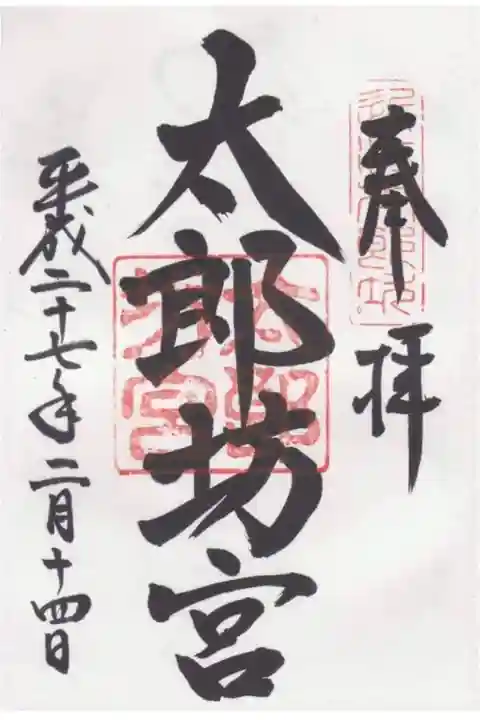 奉拝
太郎坊宮
平成二十七年二月十四日